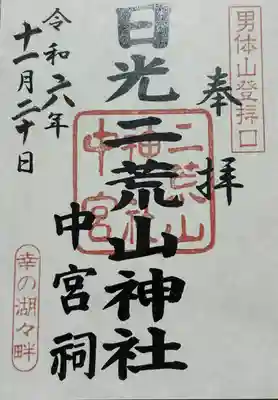 男体山登拝口
奉拝
日光二荒山神社
中宮祠
二荒山
神社
中宮
令和六年
十一月二十日
幸の湖々畔